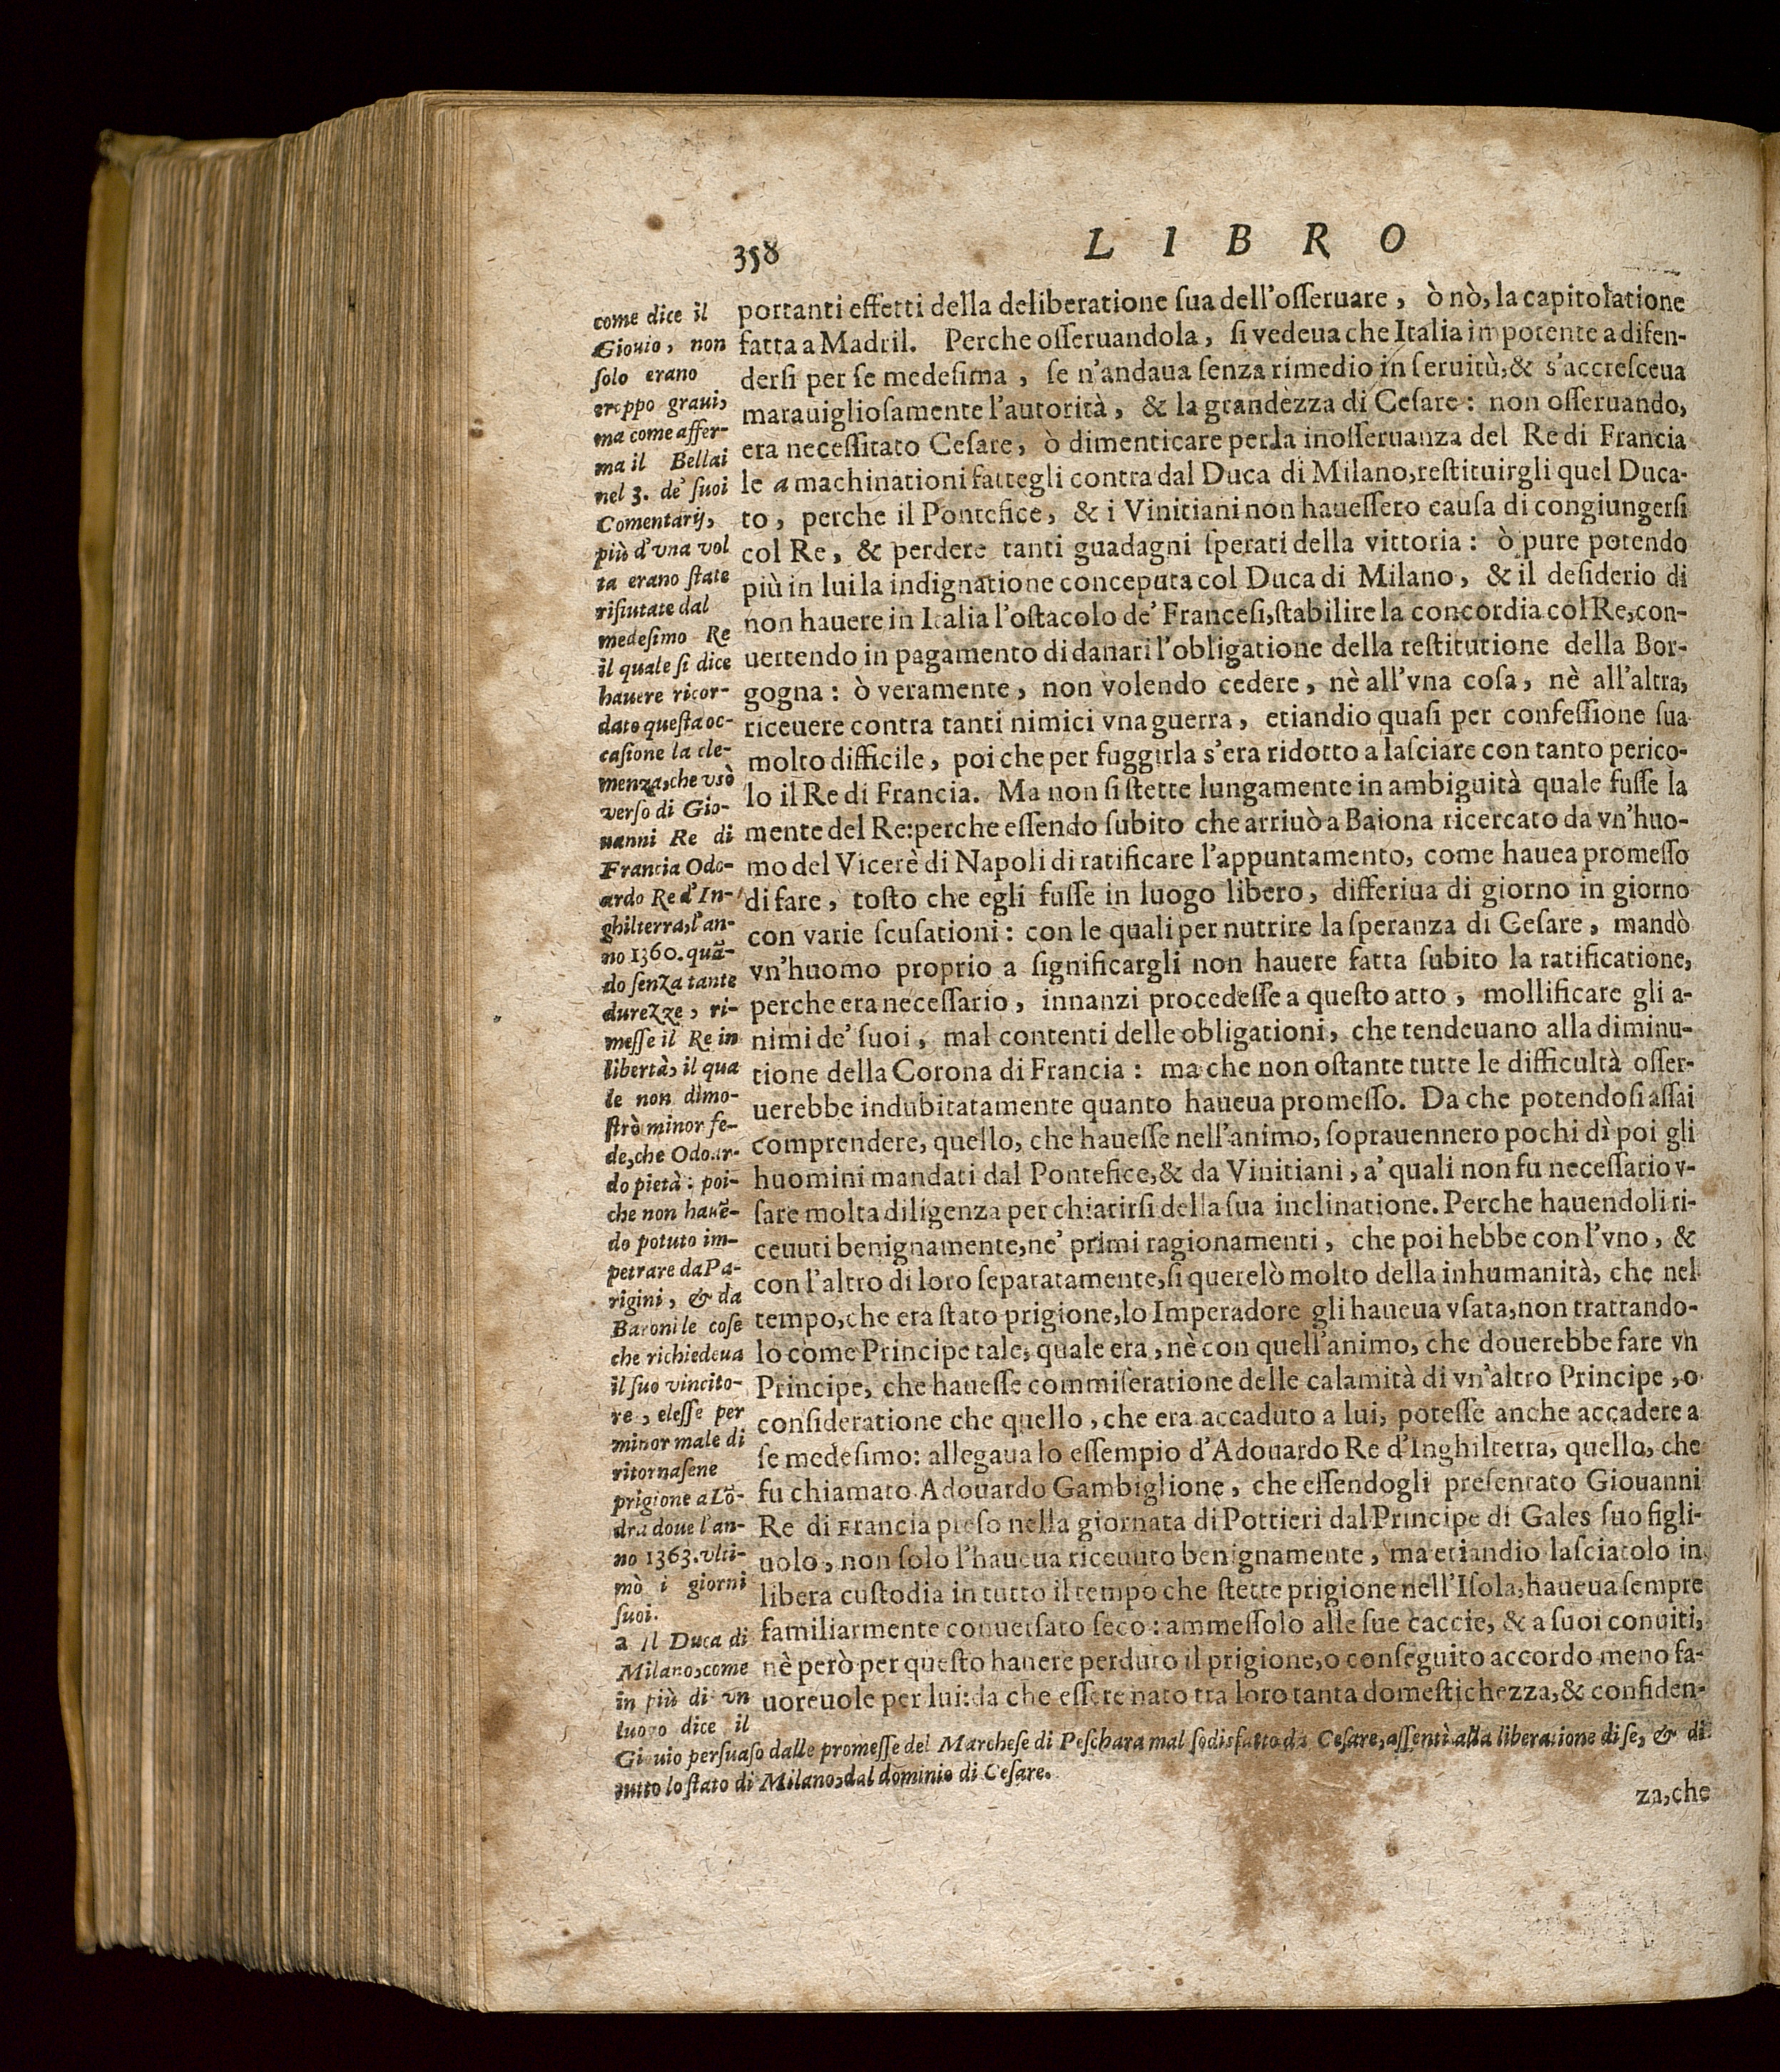 358
L I B R O
come dice il
Giouio, non
ſolo erano
troppo graui,
ma come affer-
ma il Bellai
nel 3. de' ſuoi
Comentarij,
più d'vna vol
ta erano ſtate
rifiutate dal
medeſimo Re
il quale ſi dice
hauere ricor-
dato queſta oc-
caſione la cle-
menza, che vsò
verſo di Gio-
uanni Re di
Francia Odo-
ardo Re d'In-
ghilterra, l'an-
no 1360. quã-
do ſenza tante
durezze, ri-
meſſe il Re in
libertà, il qua
le non dimo-
ſtrò minor fe-
de, che Odoar-
do pietà: poi-
che non hauẽ-
do potuto im-
petrare da Pa-
rigini, & da
Baroni le coſe
che richiedeua
il ſuo vincito-
re, eleſſe per
minor male di
ritornaſene
prigione a Lõ-
dra doue l'an-
no 1363. vlti-
mò i giorni
ſuoi.
a Il Duca di
Milano, come
in più di vn
luogo dice il
portanti effetti della deliberatione ſua dell'oſſeruare, ò nò, la capitolatione
fatta a Madril. Perche oſſeruandola, ſi vedeua che Italia impotente a difen-
derſi per ſe medeſima, ſe n'andaua ſenza rimedio in ſeruitù, & s'accreſceua
marauiglioſamente l'autorità, & la grandezza di Ceſare: non oſſeruando,
era neceſſitato Ceſare, ò dimenticare per la inoſſeruanza del Re di Francia
le a machinationi fattegli contra dal Duca di Milano, reſtituirgli quel Duca-
to, perche il Pontefice, & i Vinitiani non haueſſero cauſa di congiungerſi
col Re, & perdere tanti guadagni ſperati della vittoria: ò pure potendo
più in lui la indignatione conceputa col Duca di Milano, & il deſiderio di
non hauere in Italia l'oſtacolo de' Franceſi, ſtabilire la concordia col Re, con-
uertendo in pagamento di danari l'obligatione della reſtitutione della Bor-
gogna: ò veramente, non volendo cedere, nè all'vna coſa, nè all'altra,
riceuere contra tanti nimici vna guerra, etiandio quaſi per confeſſione ſua
molto difficile, poi che per fuggirla s'era ridotto a laſciare con tanto perico-
lo il Re di Francia. Ma non ſi ſtette lungamente in ambiguità quale fuſſe la
mente del Re: perche eſſendo ſubito che arriuò a Baiona ricercato da vn'huo-
mo del Vicerè di Napoli di ratificare l'appuntamento, come hauea promeſſo
di fare, toſto che egli fuſſe in luogo libero, differiua di giorno in giorno
con varie ſcuſationi: con le quali per nutrire la ſperanza di Ceſare, mandò
vn'huomo proprio a ſignificargli non hauere fatta ſubito la ratificatione,
perche era neceſſario, innanzi procedeſſe a queſto atto, mollificare gli a-
nimi de' ſuoi, mal contenti delle obligationi, che tendeuano alla diminu-
tione della Corona di Francia: ma che non oſtante tutte le difficultà oſſer-
uerebbe indubitatamente quanto haueua promeſſo. Da che potendoſi aſſai
comprendere, quello, che haueſſe nell'animo, ſoprauennero pochi dì poi gli
huomini mandati dal Pontefice, & da Vinitiani, a' quali non fu neceſſario v-
ſare molta diligenza per chiarirſi della ſua inclinatione. Perche hauendoli ri-
ceuuti benignamente, ne' primi ragionamenti, che poi hebbe con l'vno, &
con l'altro di loro ſeparatamente, ſi querelò molto della inhumanità, che nel
tempo, che era ſtato prigione, lo Imperadore gli haueua vſata, non trattando-
lo come Principe tale, quale era, nè con quell'animo, che douerebbe fare vn
Principe, che haueſſe commiſeratione delle calamità di vn'altro Principe, o
conſideratione che quello, che era accaduto a lui, poteſſe anche accadere a
ſe medeſimo: allegaua lo eſſempio d'Adouardo Re d'Inghilterra, quello, che
fu chiamato Adouardo Gambiglione, che eſſendogli preſentato Giouanni
Re di Francia preſo nella giornata di Pottieri dal Principe di Gales ſuo figli-
uolo, non ſolo l'haueua riceuuto benignamente, ma etiandio laſciatolo in
libera cuſtodia in tutto il tempo che ſtette prigione nell'Iſola, haueua ſempre
familiarmente conuerſato ſeco: ammeſſolo alle ſue caccie, & a ſuoi conuiti,
nè però per queſto hauere perduto il prigione, o conſeguito accordo meno fa-
uoreuole per lui: da che eſſere nato tra loro tanta domeſtichezza, & confiden-
Giouio perſuaſo dalle promeſſe del Marcheſe di Peſchara mal ſodisfatto da Ceſare, aſſentì alla liberatione di ſe, & di
tutto lo ſtato di Milano, dal dominio di Ceſare.
za, che